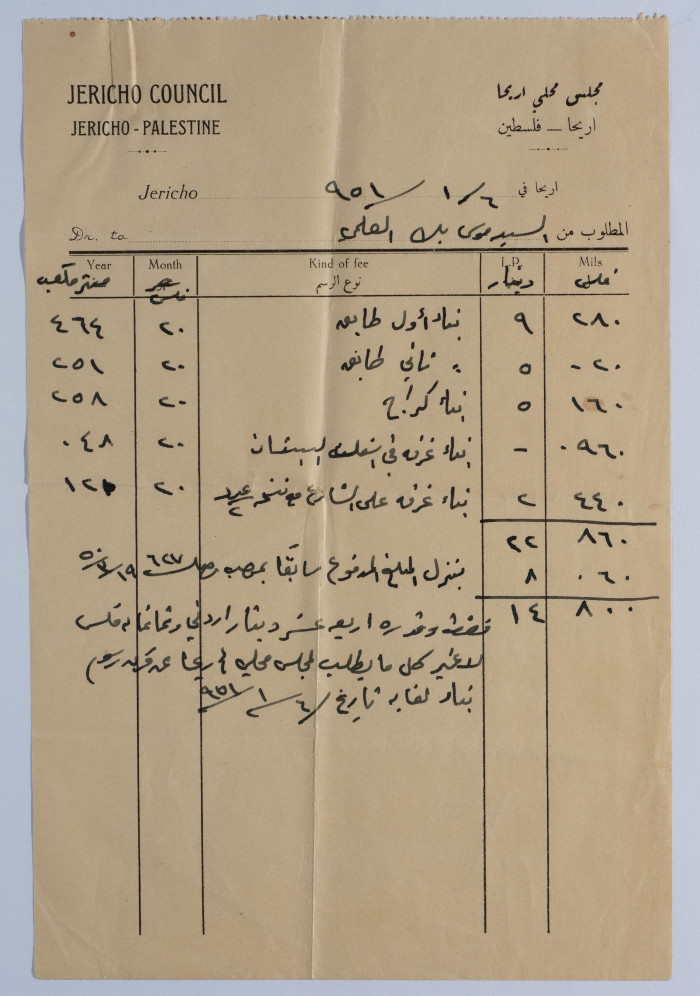 JERICHO COUNCIL
JERICHO - PALESTINE
مجلس محلي اريحا
اريحا — فلسطين
Jericho اريحا في ٦/١/٩٥١
Dr. to المطلوب من السيد موسى بك العلمي
Year Month Kind of fee L.P. Mils
متر مكعب فلس نوع الرسم دينار فلس
٤٦٤ ٢٠ بناء أول طابق ٩ ٢٨٠
٢٥١ ٢٠ " ثاني طابق ٥ ٠٢٠
٢٥٨ ٢٠ بناء كراج ٥ ١٦٠
٠٤٨ ٢٠ بناء غرفة في البستان - ٩٦٠
١٢٢ ٢٠ بناء غرفة على الشارع مع ٢ ٤٤٠
٢٢ ٨٦٠
ينزل المبلغ المدفوع سابقًا بموجب وصل ٦٢٧ ٨ ٠٦٠
١٤ ٨٠٠
فقط وقدره اربعة عشر دينار اردني وثمانماية فلس
لا غير كل ما يطلب لمجلس محلي أريحا عن رسوم
بناء لغاية تاريخ ٦/١/٩٥١